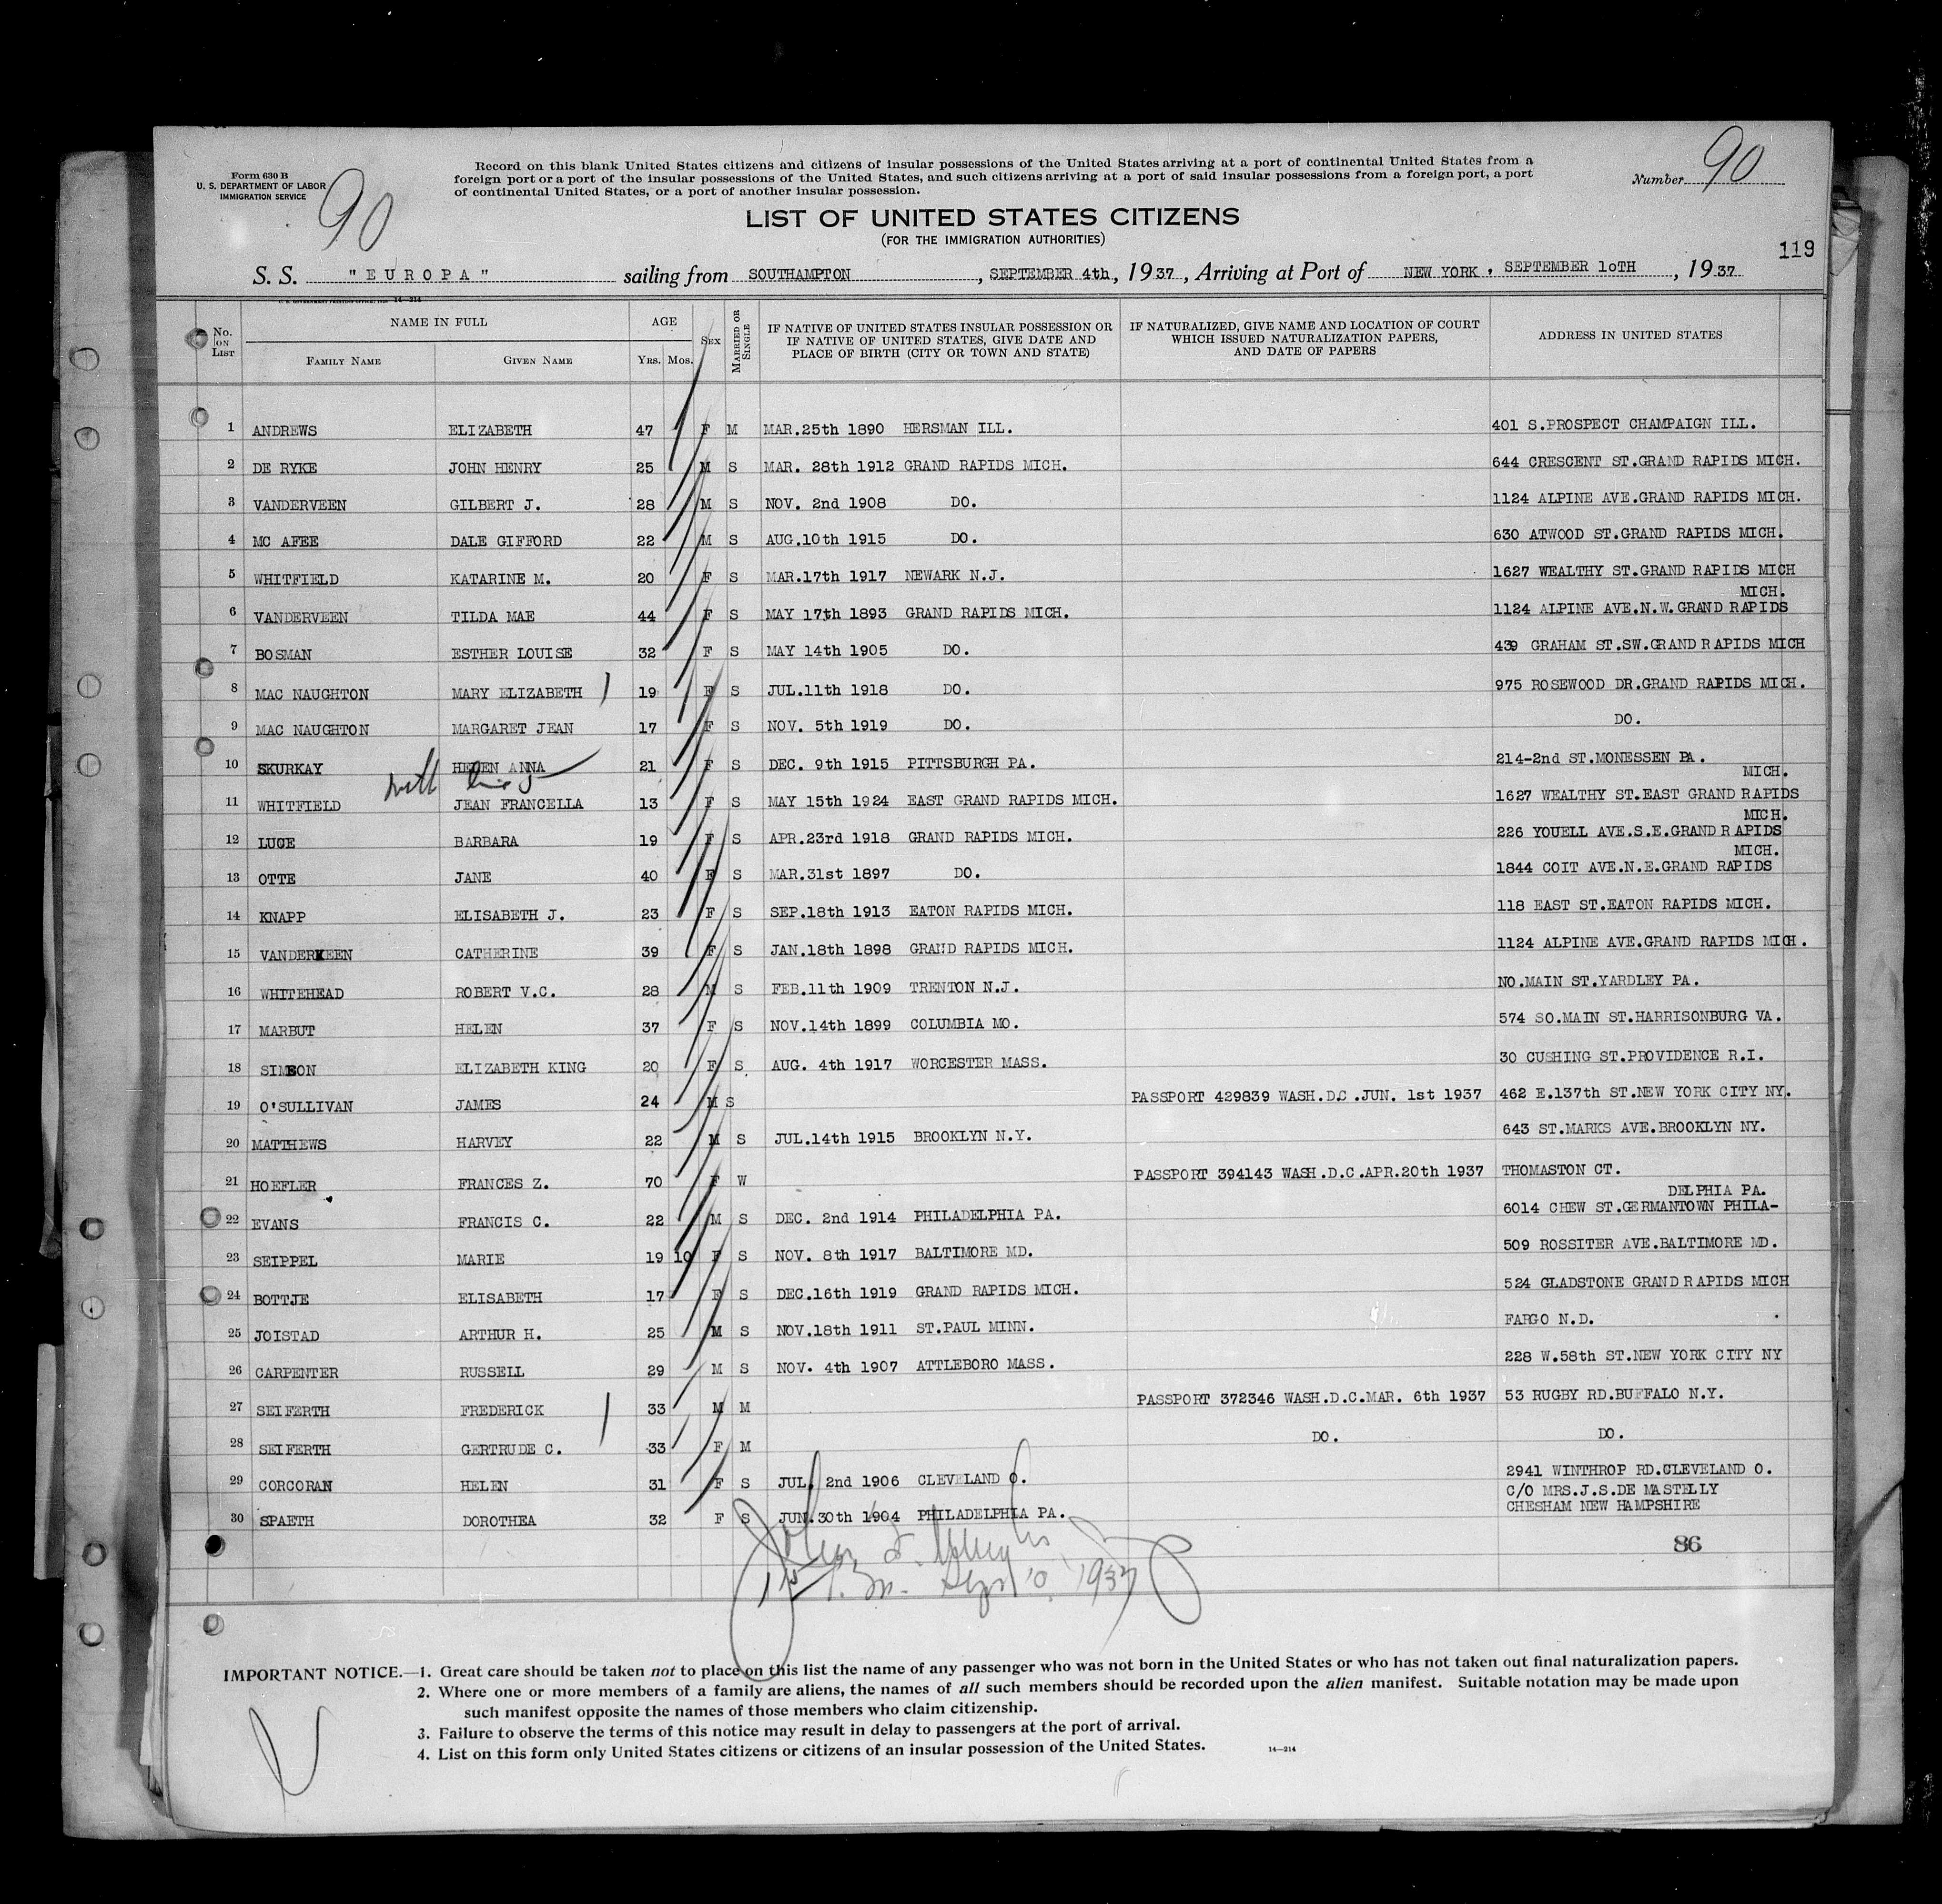 Form 630 B
U. S. DEPARTMENT OF LABOR
IMMIGRATION SERVICE
90
Record on this blank United States citizens and citizens of insular possessions of the United States arriving at a port of continental United States from a
foreign port or a port of the insular possessions of the United States, and such citizens arriving at a port of said insular possessions from a foreign port, a port
of continental United States, or a port of another insular possession.
Number 90
LIST OF UNITED STATES CITIZENS
(FOR THE IMMIGRATION AUTHORITIES)
119
S. S. "EUROPA" sailing from SOUTHAMPTON, SEPTEMBER 4th, 1937, Arriving at Port of NEW YORK, SEPTEMBER 10TH, 1937
14-214
No. ON LIST NAME IN FULL FAMILY NAME GIVEN NAME AGE YRS. MOS. SEX MARRIED OR SINGLE IF NATIVE OF UNITED STATES INSULAR POSSESSION OR IF NATIVE OF UNITED STATES, GIVE DATE AND PLACE OF BIRTH (CITY OR TOWN AND STATE) IF NATURALIZED, GIVE NAME AND LOCATION OF COURT WHICH ISSUED NATURALIZATION PAPERS, AND DATE OF PAPERS ADDRESS IN UNITED STATES
1 ANDREWS ELIZABETH 47 F M MAR.25th 1890 HERSMAN ILL. 401 S.PROSPECT CHAMPAIGN ILL.
2 DE RYKE JOHN HENRY 25 M S MAR. 28th 1912 GRAND RAPIDS MICH. 644 CRESCENT ST.GRAND RAPIDS MICH.
3 VANDERVEEN GILBERT J. 28 M S NOV. 2nd 1908 DO. 1124 ALPINE AVE.GRAND RAPIDS MICH.
4 MC AFEE DALE GIFFORD 22 M S AUG.10th 1915 DO. 630 ATWOOD ST.GRAND RAPIDS MICH.
5 WHITFIELD KATARINE M. 20 F S MAR.17th 1917 NEWARK N.J. 1627 WEALTHY ST.GRAND RAPIDS MICH
6 VANDERVEEN TILDA MAE 44 F S MAY 17th 1893 GRAND RAPIDS MICH. 1124 ALPINE AVE.N.W.GRAND RAPIDS MICH.
7 BOSMAN ESTHER LOUISE 32 F S MAY 14th 1905 DO. 439 GRAHAM ST.SW.GRAND RAPIDS MICH
8 MAC NAUGHTON MARY ELIZABETH 19 F S JUL.11th 1918 DO. 975 ROSEWOOD DR.GRAND RAPIDS MICH.
9 MAC NAUGHTON MARGARET JEAN 17 F S NOV. 5th 1919 DO. DO.
10 SKURKAY HELEN ANNA 21 F S DEC. 9th 1915 PITTSBURGH PA. 214-2nd ST.MONESSEN PA.
with line 5
11 WHITFIELD JEAN FRANCELLA 13 F S MAY 15th 1924 EAST GRAND RAPIDS MICH. 1627 WEALTHY ST.EAST GRAND RAPIDS MICH.
12 LUCE BARBARA 19 F S APR.23rd 1918 GRAND RAPIDS MICH. 226 YOUELL AVE.S.E.GRAND RAPIDS MICH.
13 OTTE JANE 40 F S MAR.31st 1897 DO. 1844 COIT AVE.N.E.GRAND RAPIDS MICH.
14 KNAPP ELISABETH J. 23 F S SEP.18th 1913 EATON RAPIDS MICH. 118 EAST ST.EATON RAPIDS MICH.
15 VANDERVEEN CATHERINE 39 F S JAN.18th 1898 GRAND RAPIDS MICH. 1124 ALPINE AVE.GRAND RAPIDS MICH.
16 WHITEHEAD ROBERT V.C. 28 M S FEB.11th 1909 TRENTON N.J. NO.MAIN ST.YARDLEY PA.
17 MARBUT HELEN 37 F S NOV.14th 1899 COLUMBIA MO. 574 SO.MAIN ST.HARRISONBURG VA.
18 SIMSON ELIZABETH KING 20 F S AUG. 4th 1917 WORCESTER MASS. 30 CUSHING ST.PROVIDENCE R.I.
19 O'SULLIVAN JAMES 24 M S PASSPORT 429839 WASH.D.C.JUN. 1st 1937 462 E.137th ST.NEW YORK CITY NY.
20 MATTHEWS HARVEY 22 M S JUL.14th 1915 BROOKLYN N.Y. 643 ST.MARKS AVE.BROOKLYN NY.
21 HOEFLER FRANCES Z. 70 F W PASSPORT 394143 WASH.D.C.APR.20th 1937 THOMASTON CT.
22 EVANS FRANCIS C. 22 M S DEC. 2nd 1914 PHILADELPHIA PA. 6014 CHEW ST.GERMANTOWN PHILA-DELPHIA PA.
23 SEIPPEL MARIE 19 10 F S NOV. 8th 1917 BALTIMORE MD. 509 ROSSITER AVE.BALTIMORE MD.
24 BOTTJE ELISABETH 17 F S DEC.16th 1919 GRAND RAPIDS MICH. 524 GLADSTONE GRAND RAPIDS MICH
25 JOISTAD ARTHUR H. 25 M S NOV.18th 1911 ST.PAUL MINN. FARGO N.D.
26 CARPENTER RUSSELL 29 M S NOV. 4th 1907 ATTLEBORO MASS. 228 W.58th ST.NEW YORK CITY NY
27 SEIFERTH FREDERICK 33 M M PASSPORT 372346 WASH.D.C.MAR. 6th 1937 53 RUGBY RD.BUFFALO N.Y.
28 SEIFERTH GERTRUDE C. 33 F M DO. DO.
29 CORCORAN HELEN 31 F S JUL. 2nd 1906 CLEVELAND O. 2941 WINTHROP RD.CLEVELAND O.
30 SPAETH DOROTHEA 32 F S JUN.30th 1904 PHILADELPHIA PA. C/O MRS.J.S.DE MASTELLY CHESHAM NEW HAMPSHIRE
86
Sept 10 1937
IMPORTANT NOTICE.—1. Great care should be taken not to place on this list the name of any passenger who was not born in the United States or who has not taken out final naturalization papers.
2. Where one or more members of a family are aliens, the names of all such members should be recorded upon the alien manifest. Suitable notation may be made upon
such manifest opposite the names of those members who claim citizenship.
3. Failure to observe the terms of this notice may result in delay to passengers at the port of arrival.
4. List on this form only United States citizens or citizens of an insular possession of the United States.
14—214